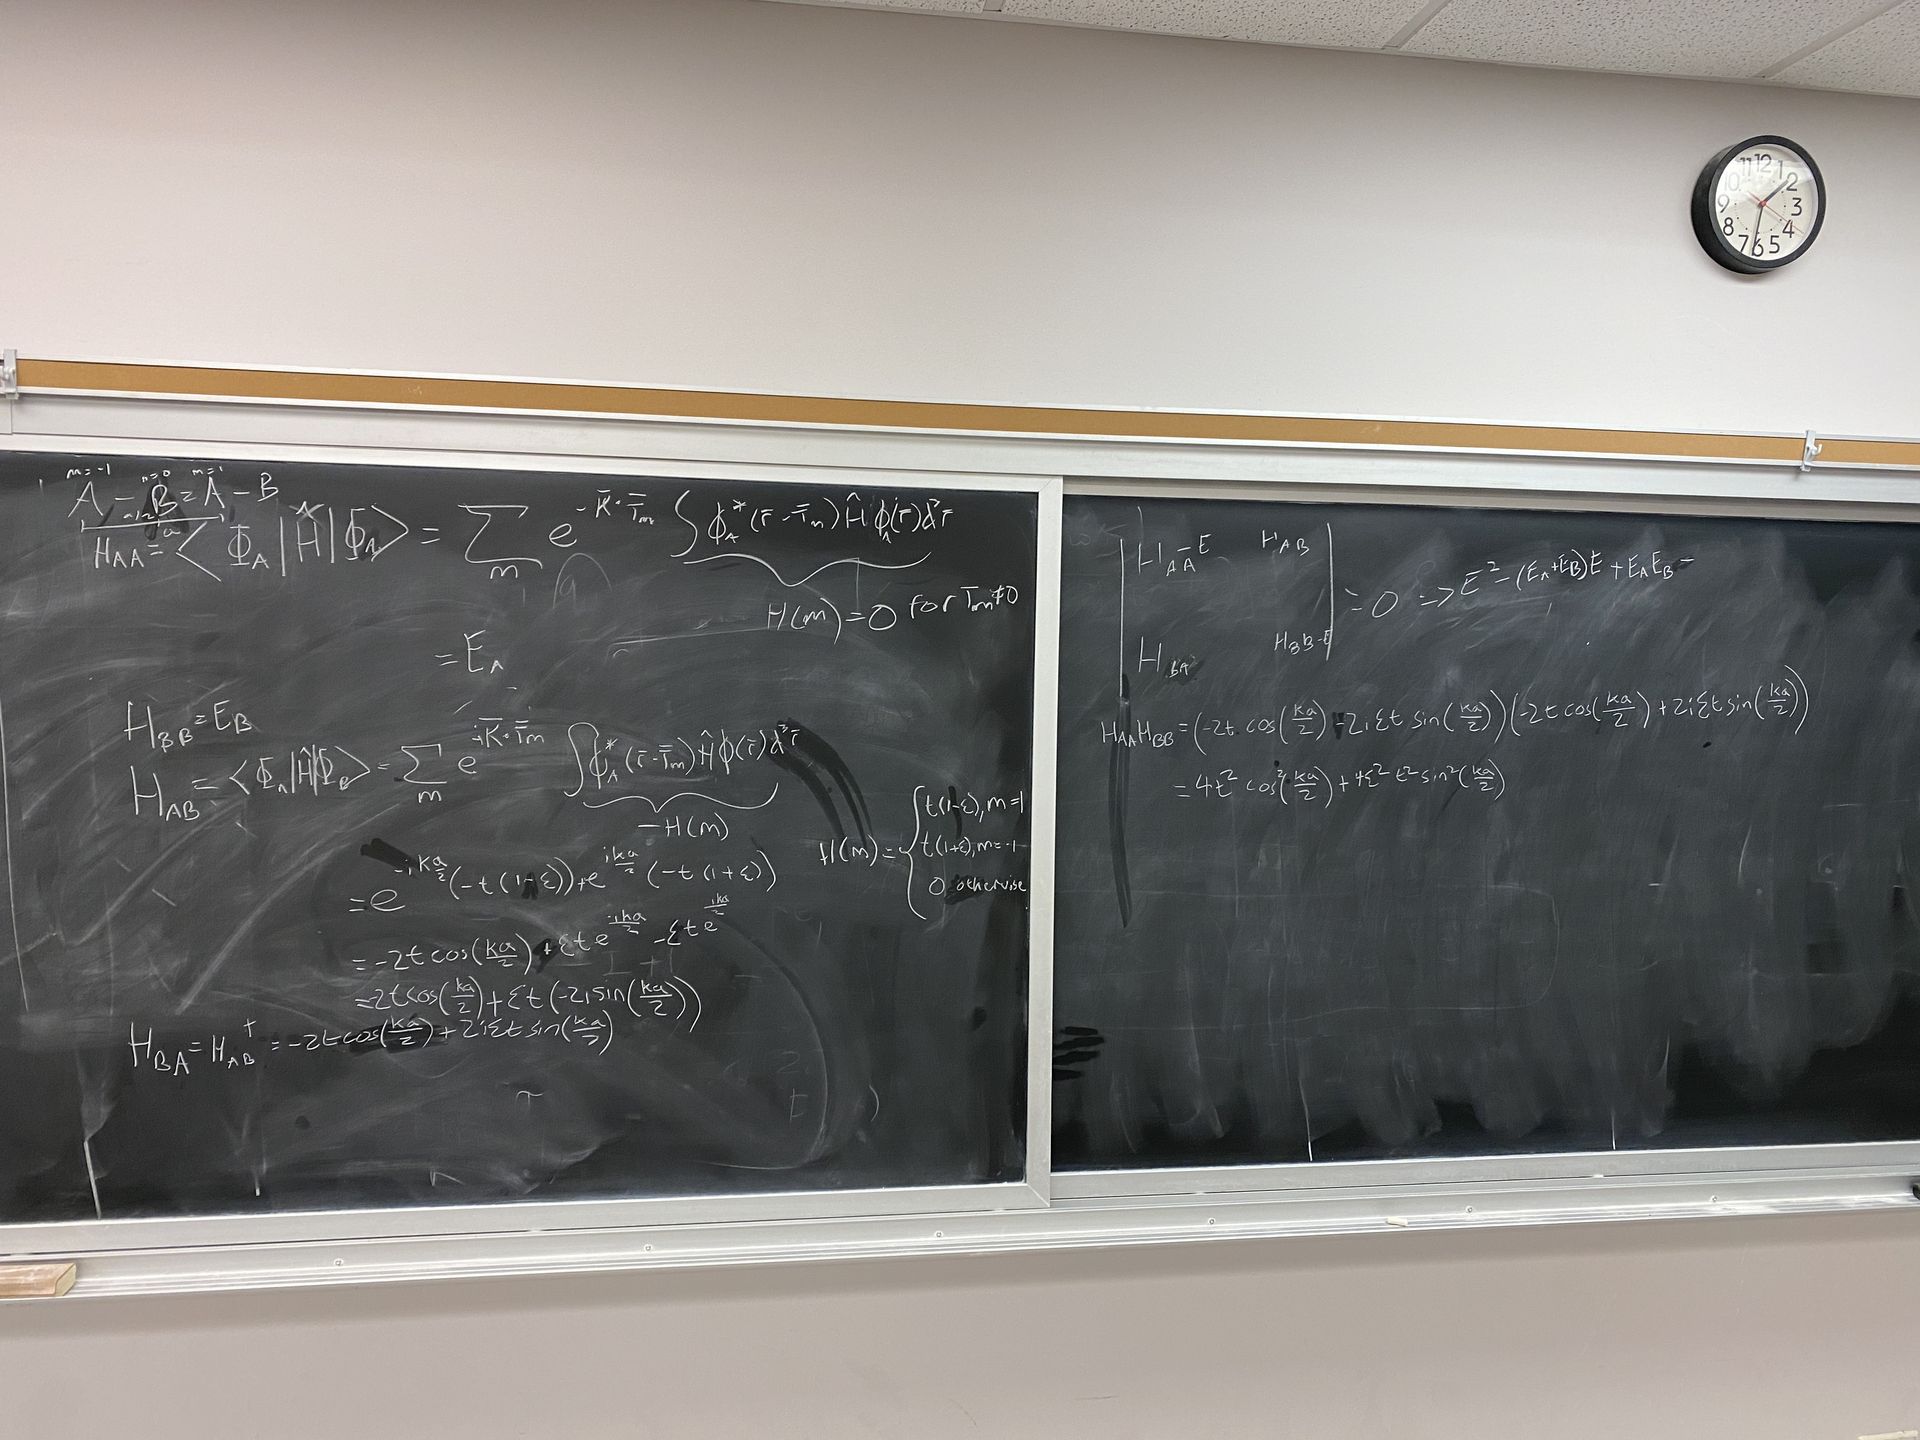 m=-1 m=0 m=1
A - B = A - B
a/2
a
H_AA = ⟨Φ_A|Ĥ|Φ_A⟩ = Σ_m e^{-K̄·T̄_m} ∫ϕ_A^*(r̄-T̄_m)Ĥϕ_A(r̄)d³r̄
H(m)=0 for T_m≠0
= E_A
H_BB = E_B
H_AB = ⟨Φ_A|Ĥ|Φ_B⟩ = Σ_m e^{-iK̄·T̄_m} ∫ϕ_A^*(r̄-T̄_m)Ĥϕ(r̄)d³r̄
-H(m)
H(m) = { t(1-ε), m=1
t(1+ε), m=-1
0 otherwise
= e^{-i ka/2}(-t(1-ε)) + e^{i ka/2}(-t(1+ε))
= -2t cos(ka/2) + εt e^{-ika/2} - εt e^{ika/2}
= -2t cos(ka/2) + εt(-2i sin(ka/2))
H_BA = H_AB^† = -2t cos(ka/2) + 2iεt sin(ka/2)
| H_AA-E H_AB |
= 0 => E² - (E_A+E_B)E + E_A E_B -
| H_BA H_BB-E |
H_AA H_BB = (-2t cos(ka/2) - 2iεt sin(ka/2))(-2t cos(ka/2) + 2iεt sin(ka/2))
= 4t² cos²(ka/2) + 4ε²t² sin²(ka/2)
12
1
2
3
4
5
6
7
8
9
10
11